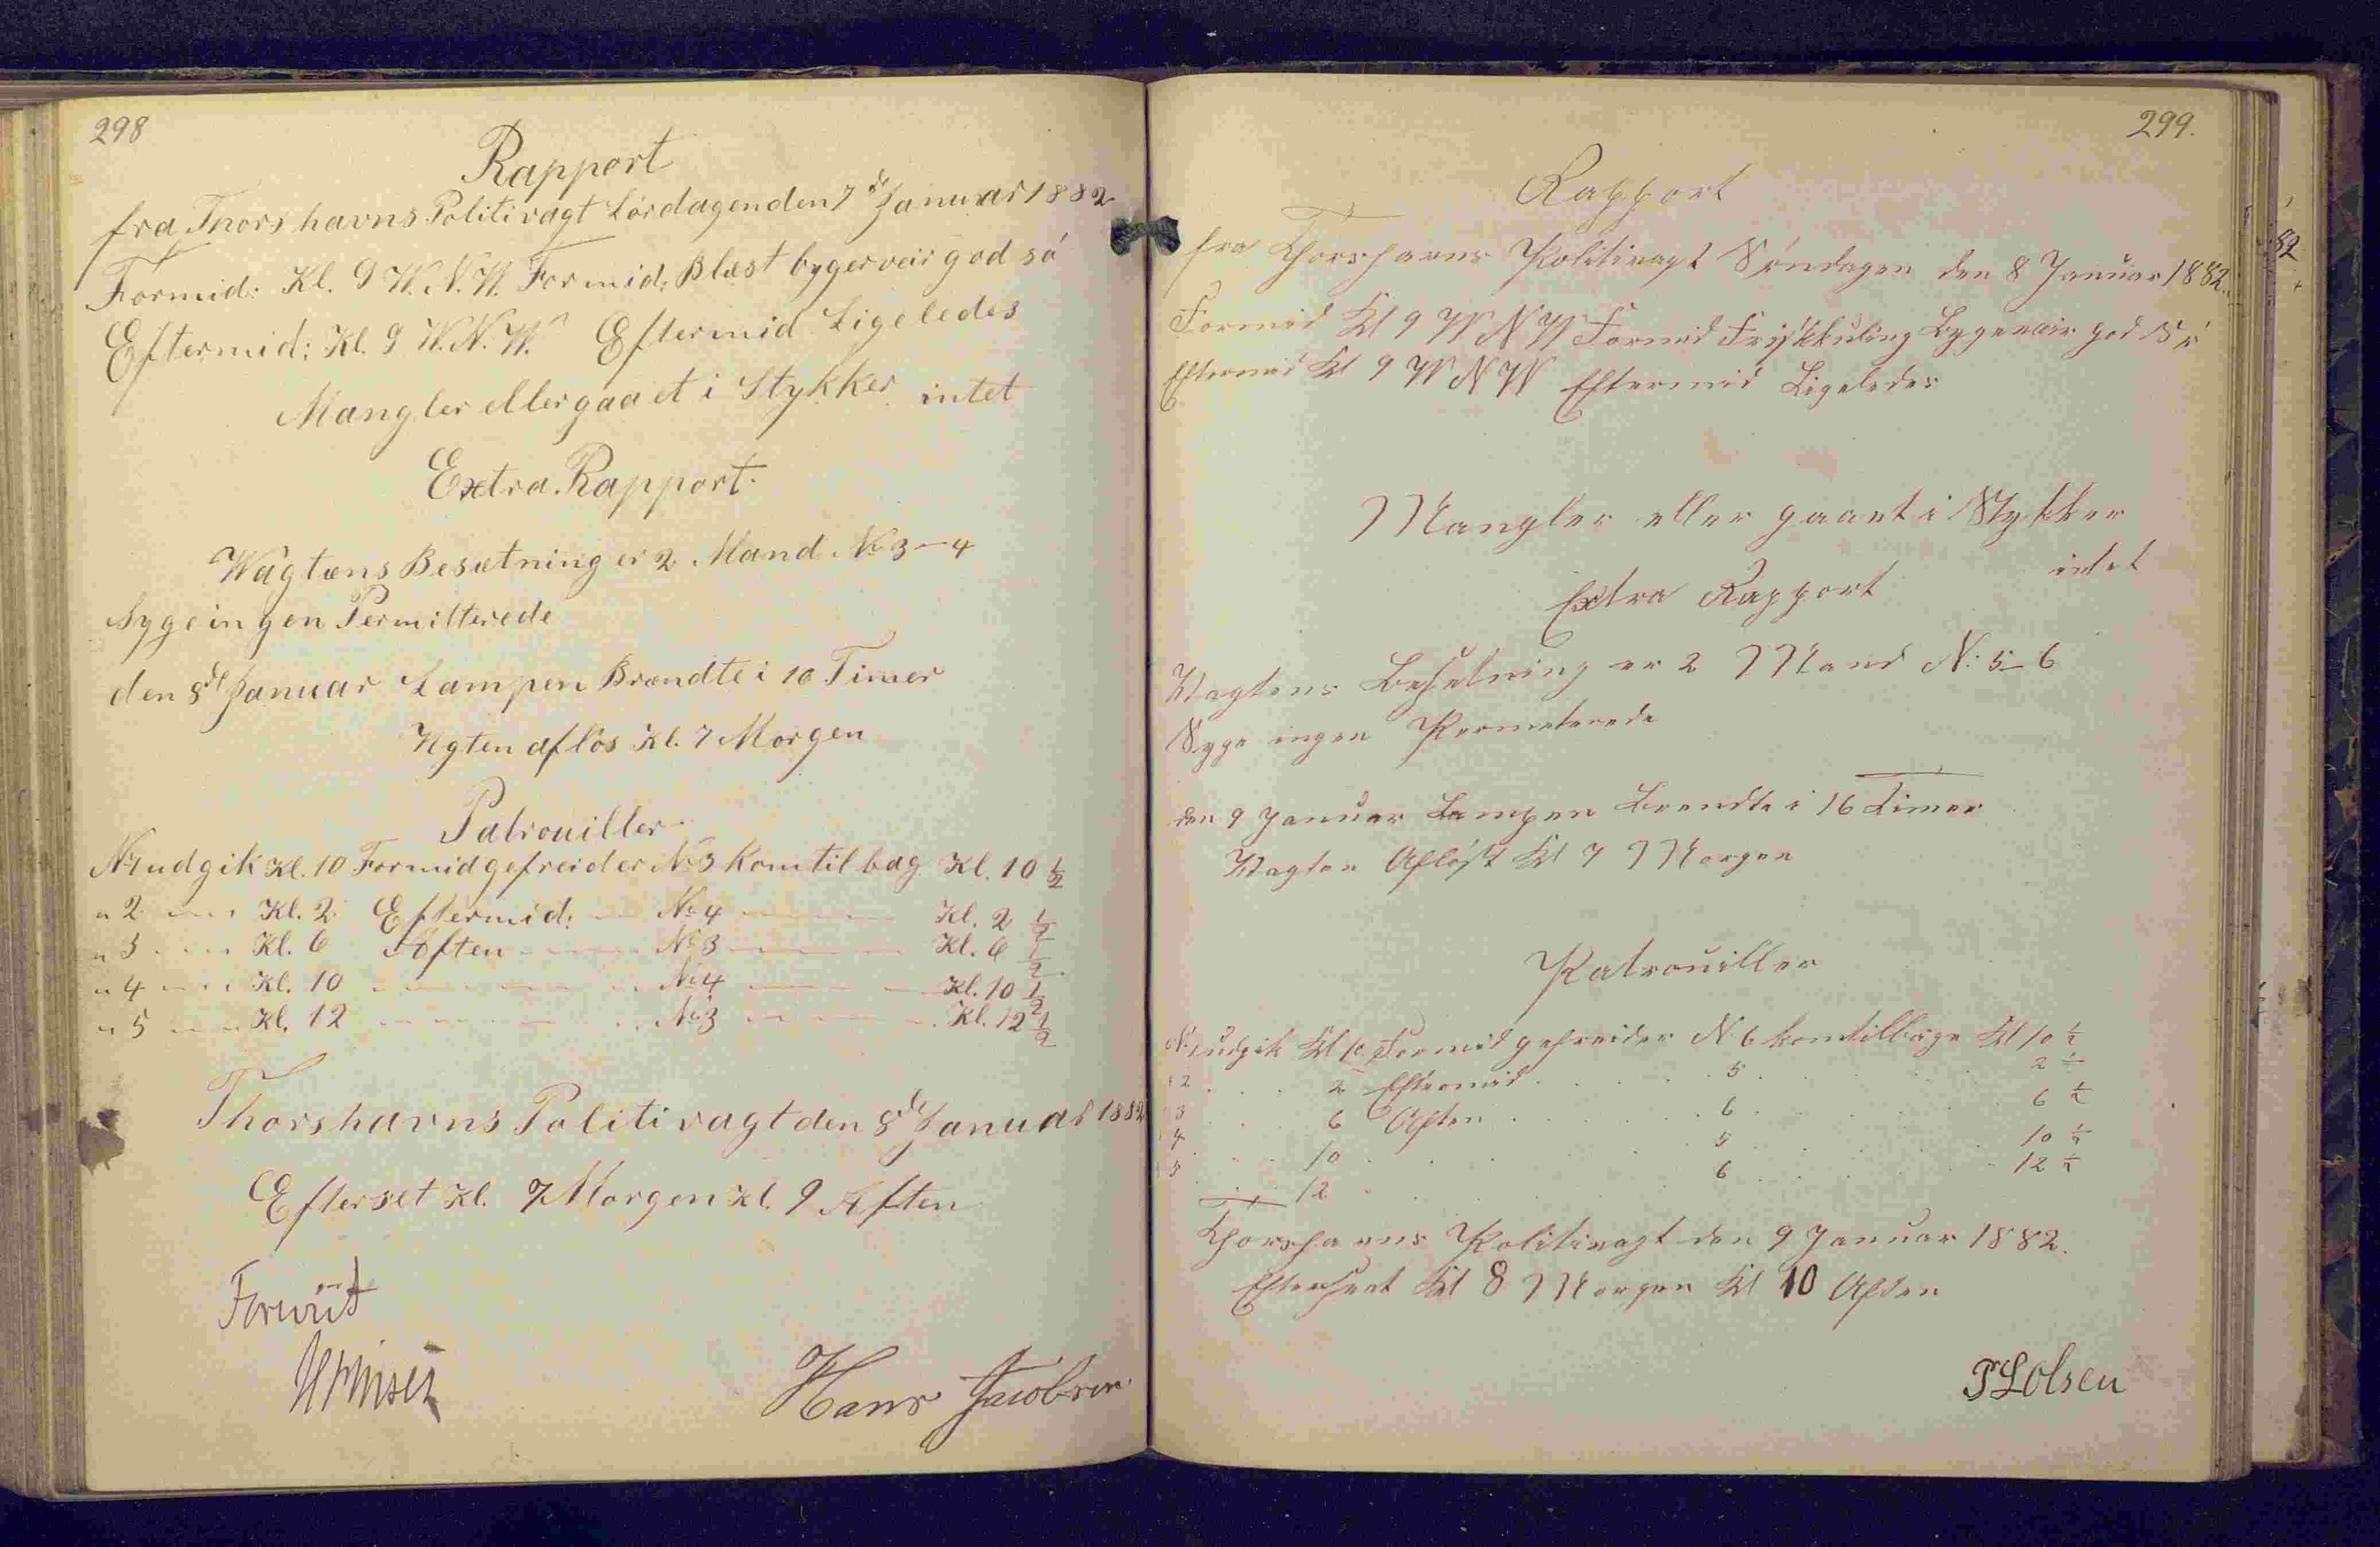 298
Rapport
fra Thorshavns Politivagt Lördagen den 7de Januar 1882
Formid: Kl. 9 W.N.W. Formid: Blæst bygerveir god só
Eftermid: Kl. 9 W.N.W. Eftermid Ligeledes
Mangler eller gaaet i Stykker intet
Extra. Rapport.
Wagtens Besætning er 2 Mand No 3-4
Syge ingen Permitterede
den 8de Januar Lampen Brændte i 10 Timer
Vgten aflös Kl. 7 Morgen
Patrouiller
No 1 udgik Kl. 10 Formid gefreider No 3 Kom tilbag Kl. 10 1/2
" 2 — " Kl. 2 Eftermid: — No 4 — Kl. 2 1/2
" 3 — " Kl. 6 Aften — No 3 — Kl. 6 1/2
" 4 — " Kl. 10 — No 4 — Kl. 10 1/2
" 5 — " Kl. 12 — No 3 — Kl. 12 1/2
Thorshavns Politivagt den 8de Januar 1882
Efterset Kl. 7 Morgen Kl. 9 Aften
Hans Jacobsen
299.
Rapport
fra Thorshavns Politivagt Söndagen den 8 Januar 1882.
Formid Kl 9 W N W Formid Friskkuling Bygeveir god Sö
Eftermid Kl 9 W N W Eftermid Ligeledes
Mangler eller gaaet i Stykker
intet
Extra Rapport
Wagtens Besetning er 2 Mand N: 5-6
Syge ingen Permeterede
den 9 Januar Lampen Brendte i 16 Timer
Wagten Aflöst Kl 7 Morgen
Patrouiller
N: 1 udgik Kl 10 Formid gefreider N: 6 kom tilbage Kl 10 1/2
" 2 . . . 2 Eftermid . . . 5 . . . 2 1/2
" 3 . . . 6 Aften . . . 6 . . . 6 1/2
" 4 . . . 10 . . . 5 . . . 10 1/2
" 5 . . . 12 . . . 6 . . . 12 1/2
Thorshavns Politivagt den 9 Januar 1882.
Efterseet Kl 8 Morgen Kl 10 Aften
P L Olsen